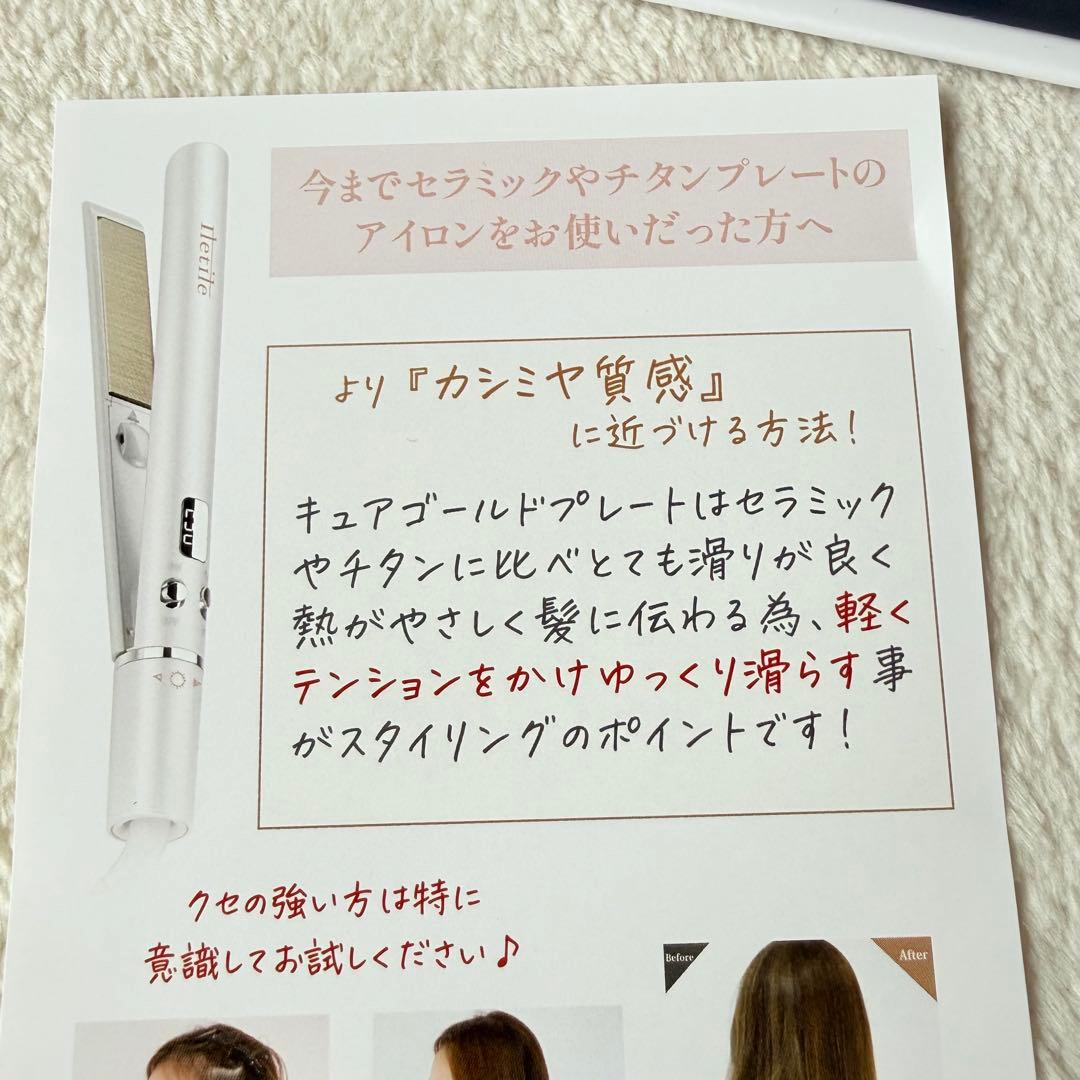 今までセラミックやチタンプレートの
アイロンをお使いだった方へ
より『カシミヤ質感』
に近づける方法！
キュアゴールドプレートはセラミック
やチタンに比べとても滑りが良く
熱がやさしく髪に伝わる為、軽く
テンションをかけゆっくり滑らす事
がスタイリングのポイントです！
クセの強い方は特に
意識してお試しください♪
Before
After